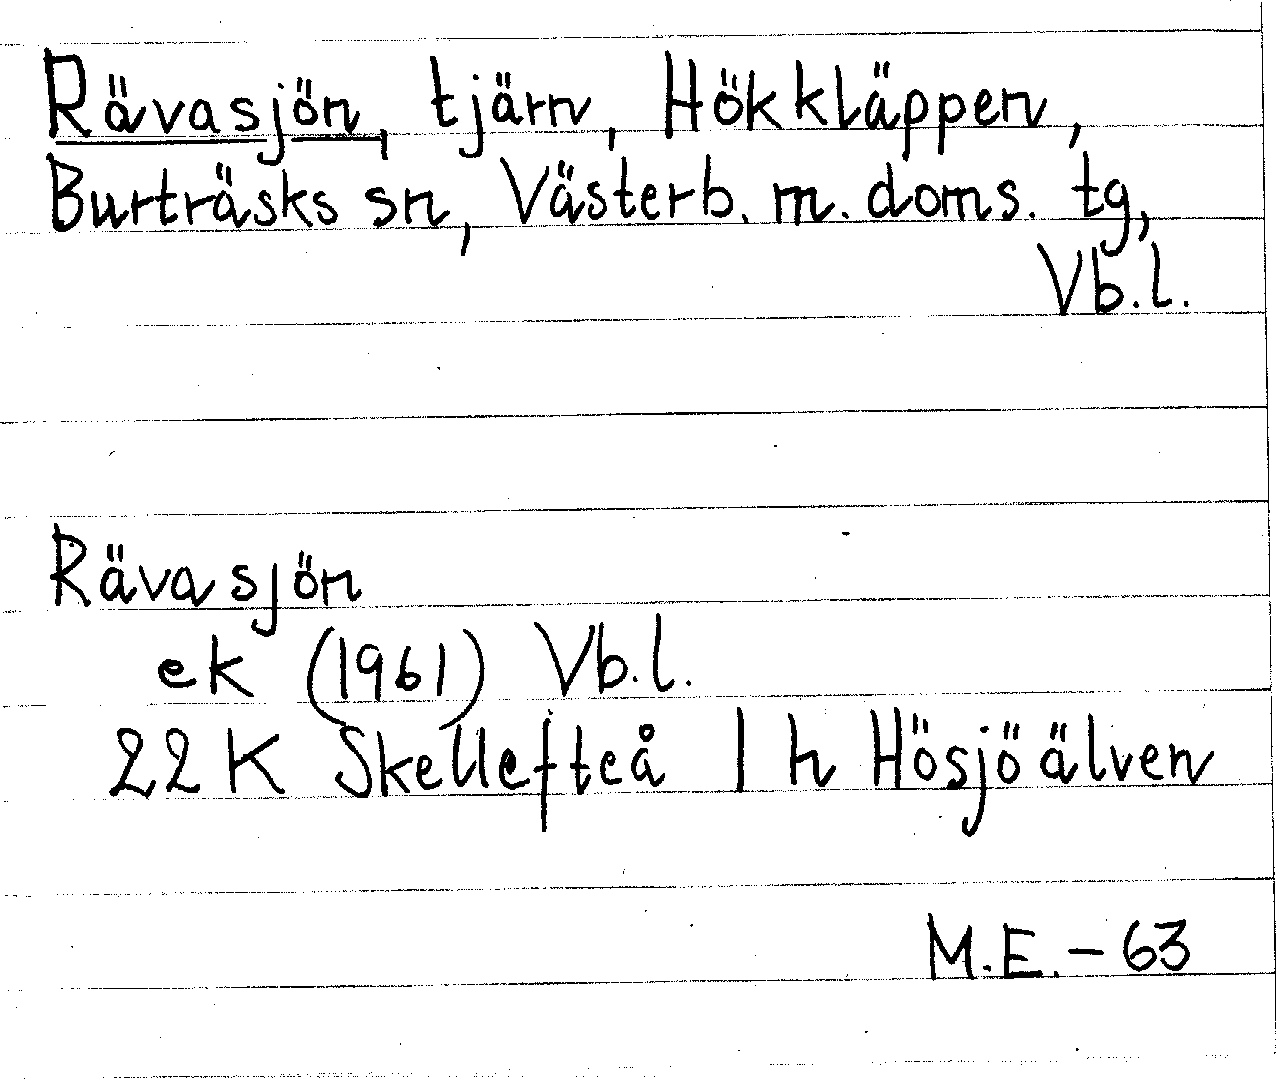 Rävasjön, tjärn, Hökkläppen,
Burträsks sn, Västerb. m. doms. tg,
Vb.l.
Rävasjön
ek (1961) Vb.l.
22 K Skellefteå 1 h Hösjöälven
M.E. - 63